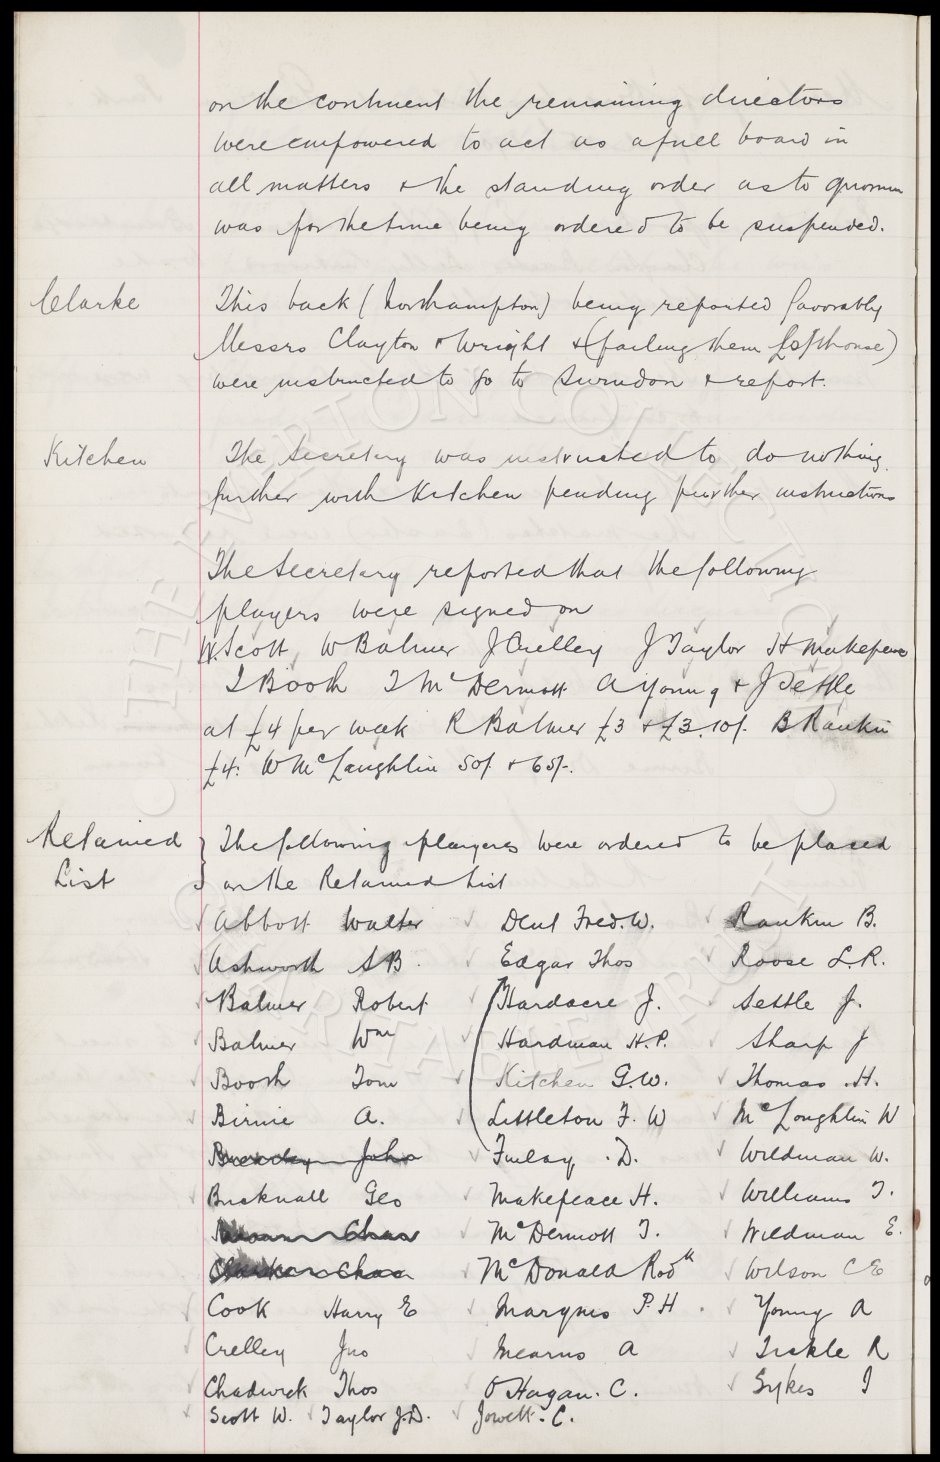 on the continent the remaining directors
were empowered to act as a full board in
all matters & the standing order as to quorum
was for the time being ordered to be suspended.
Clarke
This back (Northampton) being reported favorably
Messrs Clayton & Wright & (failing them Lofthouse)
were instructed to go to Swindon & report.
Kitchen
The Secretary was instructed to do nothing
further with Kitchen pending further instructions
The Secretary reported that the following
players were signed on
W. Scott W Balmer J Crelley J Taylor H Makepeace
T Booth T McDermott A Young & J Settle
at £4 per week R Balmer £3 & £3.10/- B Rankin
£4. W McLaughlin 50/- & 65/-.
Retained
List
The following players were ordered to be placed
on the Retained List
Abbott Walter Dent Fred. W. Rankin B.
Ashworth S B. Edgar Thos Roose L.R.
Balmer Robert Hardacre J. Settle J.
Balmer Wm Hardman H.P. Sharp J
Booth Tom Kitchen G.W. Thomas .H.
Birnie A. Littleton F. W McLoughlin W
Brearley John Finlay .D. Wildman W.
Bucknall Geo Makepeace H. Williams T.
Chas McDermott T. Wildman E.
Clarke Chas McDonald Rodk Wilson C E
Cook Harry E P.H. Young A
Crelley Jno Mearns A Tickle R
Chadwick Thos O'Hagan. C. Sykes J
Scott W. Taylor J.D. Jowett. C.
THE EVERTON COLLECTION
CHARITABLE TRUST